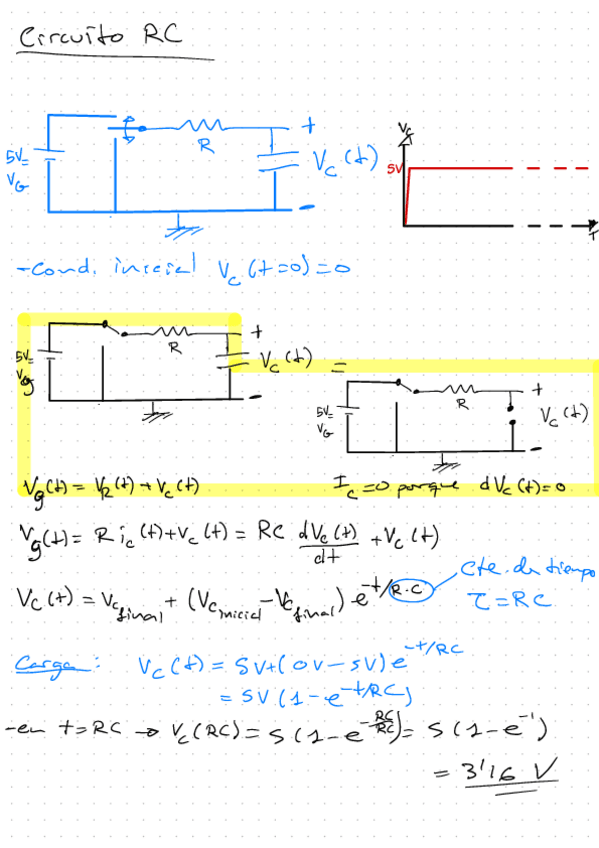 Circuito RC
5V=
VG
R
+
Vc(t)
-
Vc
5V
T
-Cond. inicial Vc(t=0)=0
5V=
Vg
R
+
Vc(t)
-
=
5V=
VG
R
+
Vc(t)
-
Vg(t) = VR(t) + Vc(t)
Ic=0 porque dVc(t)=0
Vg(t) = R ic(t)+Vc(t) = RC dVc(t)/dt + Vc(t)
Vc(t) = Vc final + (Vc inicial - Vc final) e^-t/R·C
Cte. de tiempo
τ = RC
Carga: Vc(t) = 5V+(0V-5V)e^-t/RC
= 5V(1-e^-t/RC)
-en t=RC → Vc(RC) = 5(1-e^-RC/RC) = 5(1-e^-1)
= 3'16 V